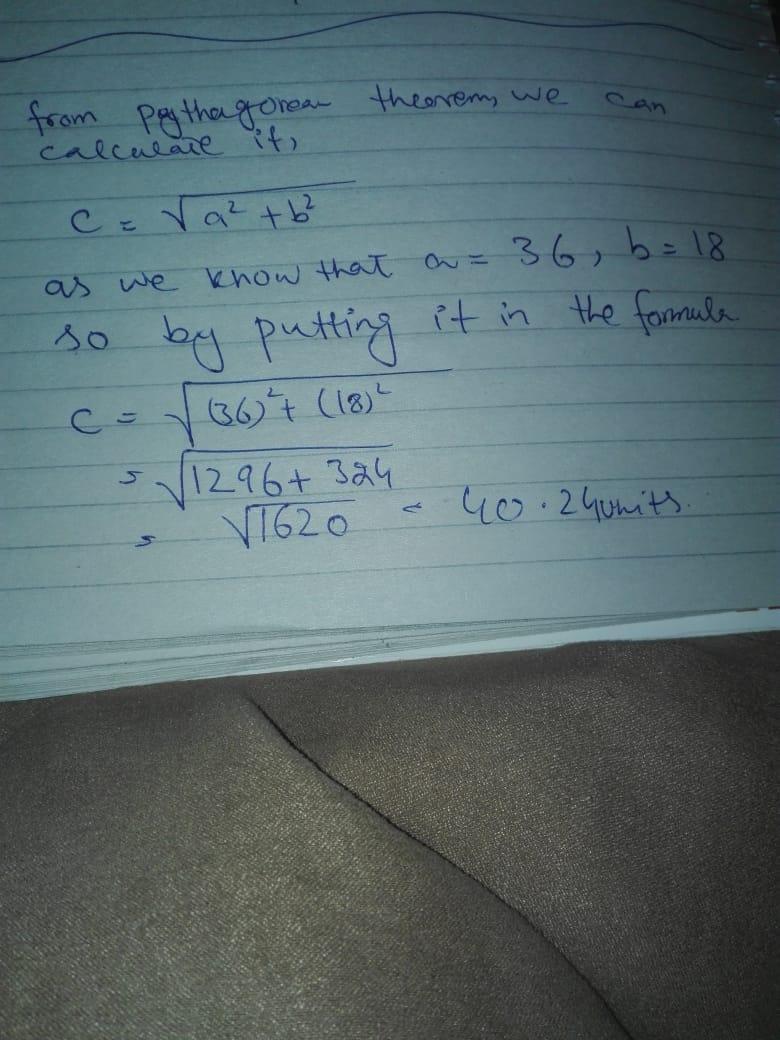 from Pythagorean theorem, we can
calculate it,
c = √a² + b²
as we know that a = 36, b = 18
so by putting it in the formula
c = √(36)² + (18)²
= √1296 + 324
= √1620 = 40.24 units.